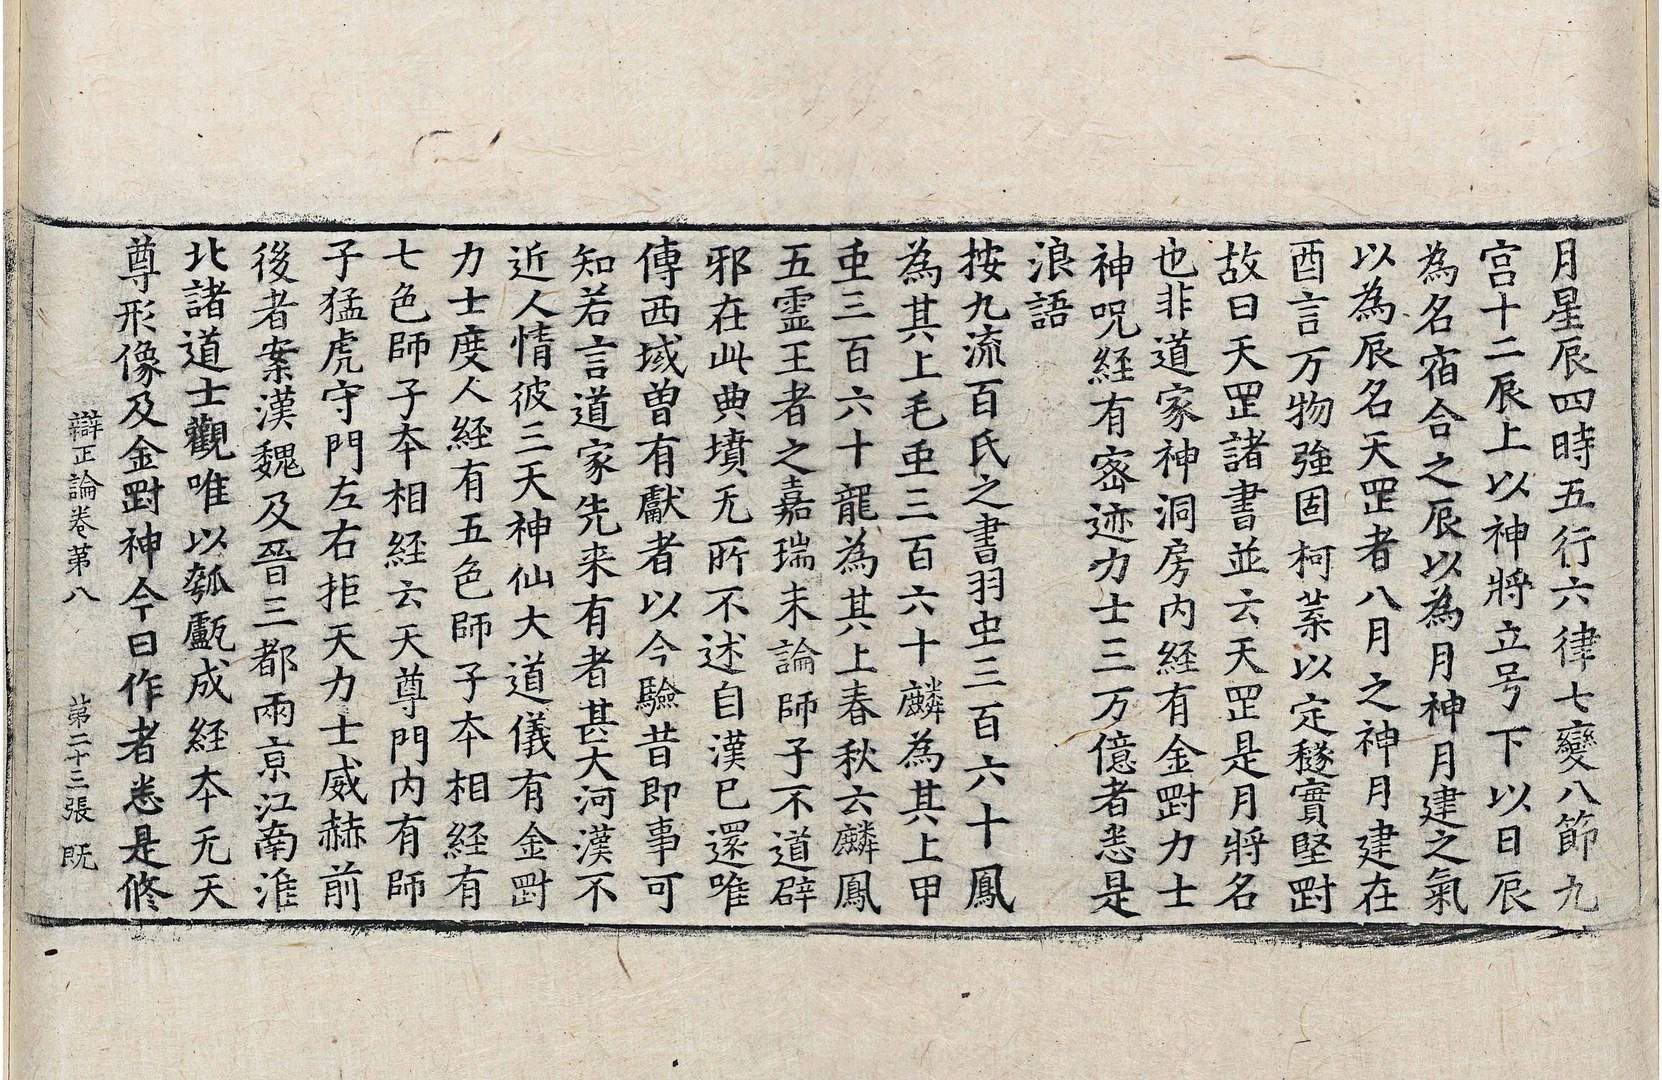 月星辰四時五行六律七變八節九
宮十二辰上以神將立号下以日辰
為名宿合之辰以為月神月建之氣
以為辰名天罡者八月之神月建在
酉言万物強固柯葉以定穟實堅𠟼
故曰天罡諸書並云天罡是月將名
也非道家神洞房内経有金𠟼力士
神呪経有宻迹力士三万億者悉是
浪語
按九流百氏之書羽虫三百六十鳳
為其上毛虫三百六十麟為其上甲
虫三百六十龍為其上春秋六麟鳳
五霊王者之嘉瑞未論師子不道辟
邪在此典墳无所不述自漢已還唯
傳西域曽有獻者以今驗昔即事可
知若言道家先来有者甚大河漢不
近人情彼三天神仙大道儀有金𠟼
力士度人経有五色師子夲相経有
七色師子夲相経云天尊門内有師
子猛虎守門左右拒天力士威赫前
後者案漢魏及晉三都兩京江南淮
北諸道士觀唯以瓠甗成経夲无天
尊形像及金𠟼神今日作者悉是修
辯正論卷第八 第二十三張 既